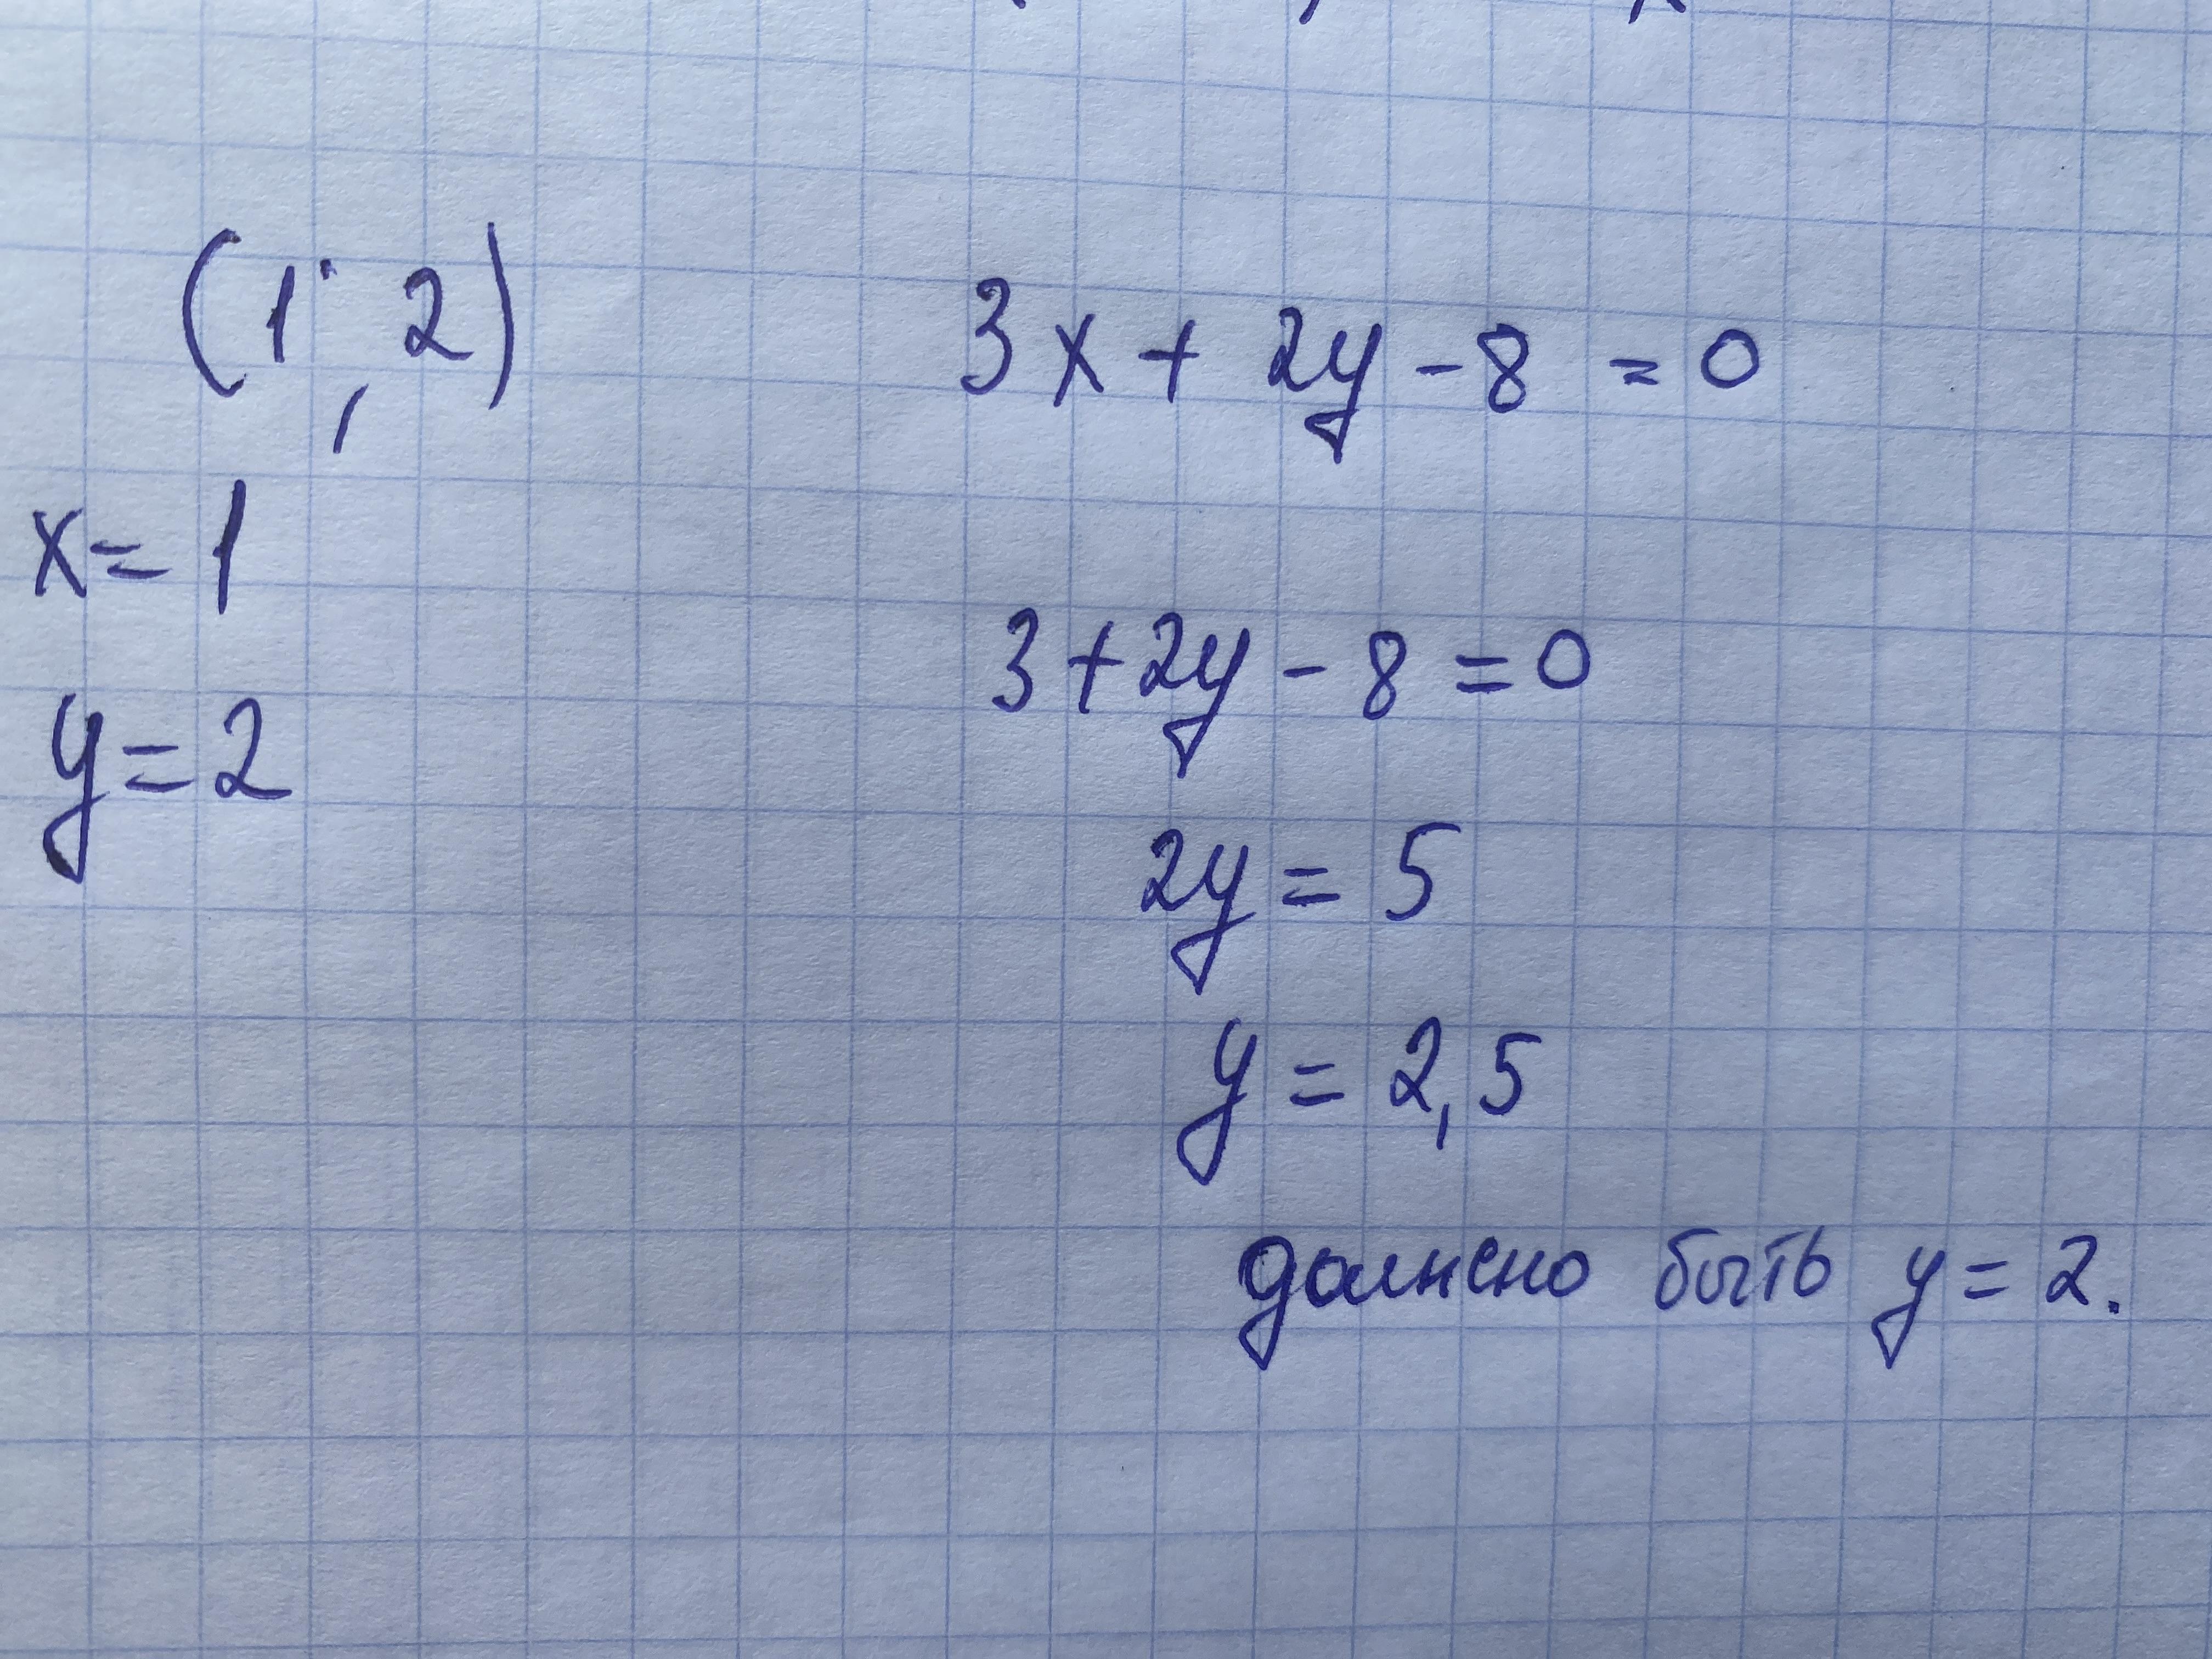 (1; 2)
3x + 2y - 8 = 0
x = 1
3 + 2y - 8 = 0
y = 2
2y = 5
y = 2,5
должно быть y = 2.